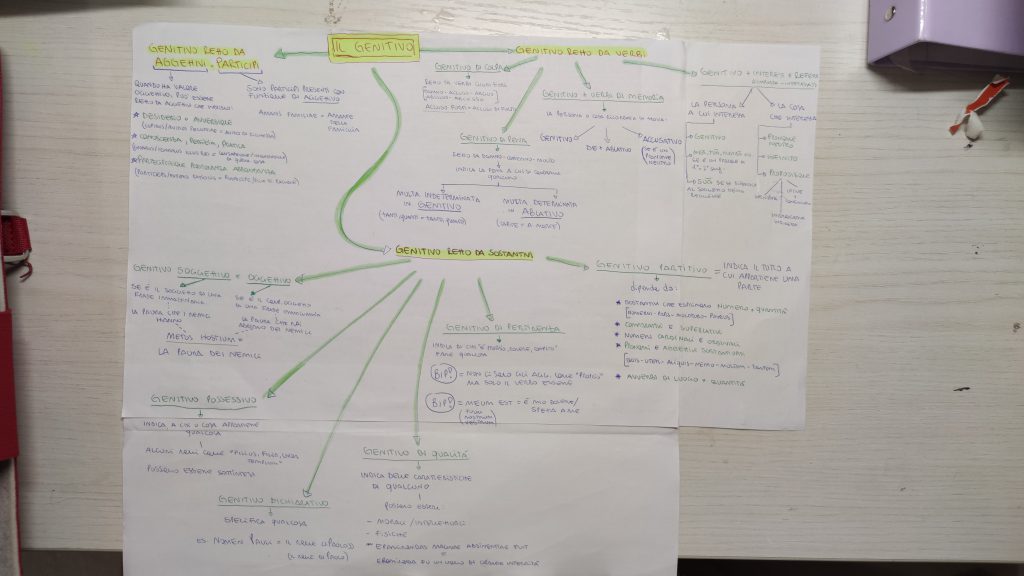 IL GENITIVO
GENITIVO RETTO DA
AGGETTIVI e PARTICIPI
QUANDO HA VALORE
OGGETTIVO, PUÒ ESSERE
RETTO DA AGGETTIVI CHE
SONO PARTICIPI PRESENTI CON
FUNZIONE DI AGGETTIVO
AMANS FAMILIAE = AMANTE
DELLA
FAMIGLIA
* DESIDERIO e AVVERSIONE
* CONOSCENZA, PERIZIA, PRATICA
* PARTECIPAZIONE ABBONDANZA
GENITIVO RETTO DA VERBI
GENITIVO DI COLPA
RETTO DA VERBI GIUDIZIARI
GENITIVO DI PENA
RETTO DA DAMNO - CONDEMNO - MULTO
INDICA LA PENA A CUI SI CONDANNA
QUALCUNO
MULTA INDETERMINATA
IN GENITIVO
(TANTI, QUANTI = TANTO, QUANTO)
MULTA DETERMINATA
IN ABLATIVO
(CAPITE = A MORTE)
GENITIVO + VERBI DI MEMORIA
LA PERSONA O COSA RICORDATA SI TROVA:
GENITIVO
DE + ABLATIVO
ACCUSATIVO
(SE È UN
PRONOME
NEUTRO)
GENITIVO + INTEREST e REFERT
LA PERSONA
A CUI INTERESSA
LA COSA
CHE INTERESSA
GENITIVO
PRONOME
NEUTRO
INFINITO
PROPOSIZIONE
INTERROGATIVA
INDIRETTA
GENITIVO RETTO DA SOSTANTIVI
GENITIVO SOGGETTIVO e OGGETTIVO
SE È IL SOGGETTO DI UNA
FRASE IMMAGINARIA
LA PAURA CHE I NEMICI
HANNO
SE È IL COMPL. OGGETTO
DI UNA FRASE IMMAGINARIA
LA PAURA CHE HAI
ADDOSSO DEI NEMICI
METUS HOSTIUM
LA PAURA DEI NEMICI
GENITIVO PARTITIVO = INDICA IL TUTTO A
CUI APPARTIENE UNA
PARTE
dipende da:
* SOSTANTIVI CHE ESPRIMONO NUMERO e QUANTITÀ
* COMPARATIVI E SUPERLATIVI
* NUMERI CARDINALI E ORDINALI
* PRONOMI E AGGETTIVI SOSTANTIVATI
[QUIS - UTER - ALIQUIS - NEMO - MULTUM - TANTUM]
* AVVERBI DI LUOGO e QUANTITÀ
GENITIVO DI PERTINENZA
INDICA DI CHI È PROPRIO, DOVERE, COMPITO
FARE QUALCOSA
BIP! = NON CI SONO GLI AGG. COME "PROPRIO"
MA SOLO IL VERBO ESSERE
BIP! = MEUM EST = È MIO DOVERE /
SPETTA A ME
GENITIVO POSSESSIVO
INDICA A CHI O COSA APPARTIENE
QUALCOSA
ALCUNI NOMI COME "FILIUS, FILIA, UXOR
TEMPLUM"
POSSONO ESSERE SOTTINTESI
GENITIVO DICHIARATIVO
SPECIFICA QUALCOSA
ES. NOMEN PAULI = IL NOME (PAOLO)
(IL NOME DI PAOLO)
GENITIVO DI QUALITÀ
INDICA DELLE CARATTERISTICHE
DI QUALCUNO
POSSONO ESSERE:
- MORALI / INTELLETTUALI
- FISICHE
- EPAMINONDAS MAGNAE ABSTINENTIAE FUIT
EPAMINONDA FU UN UOMO DI GRANDE INTEGRITÀ